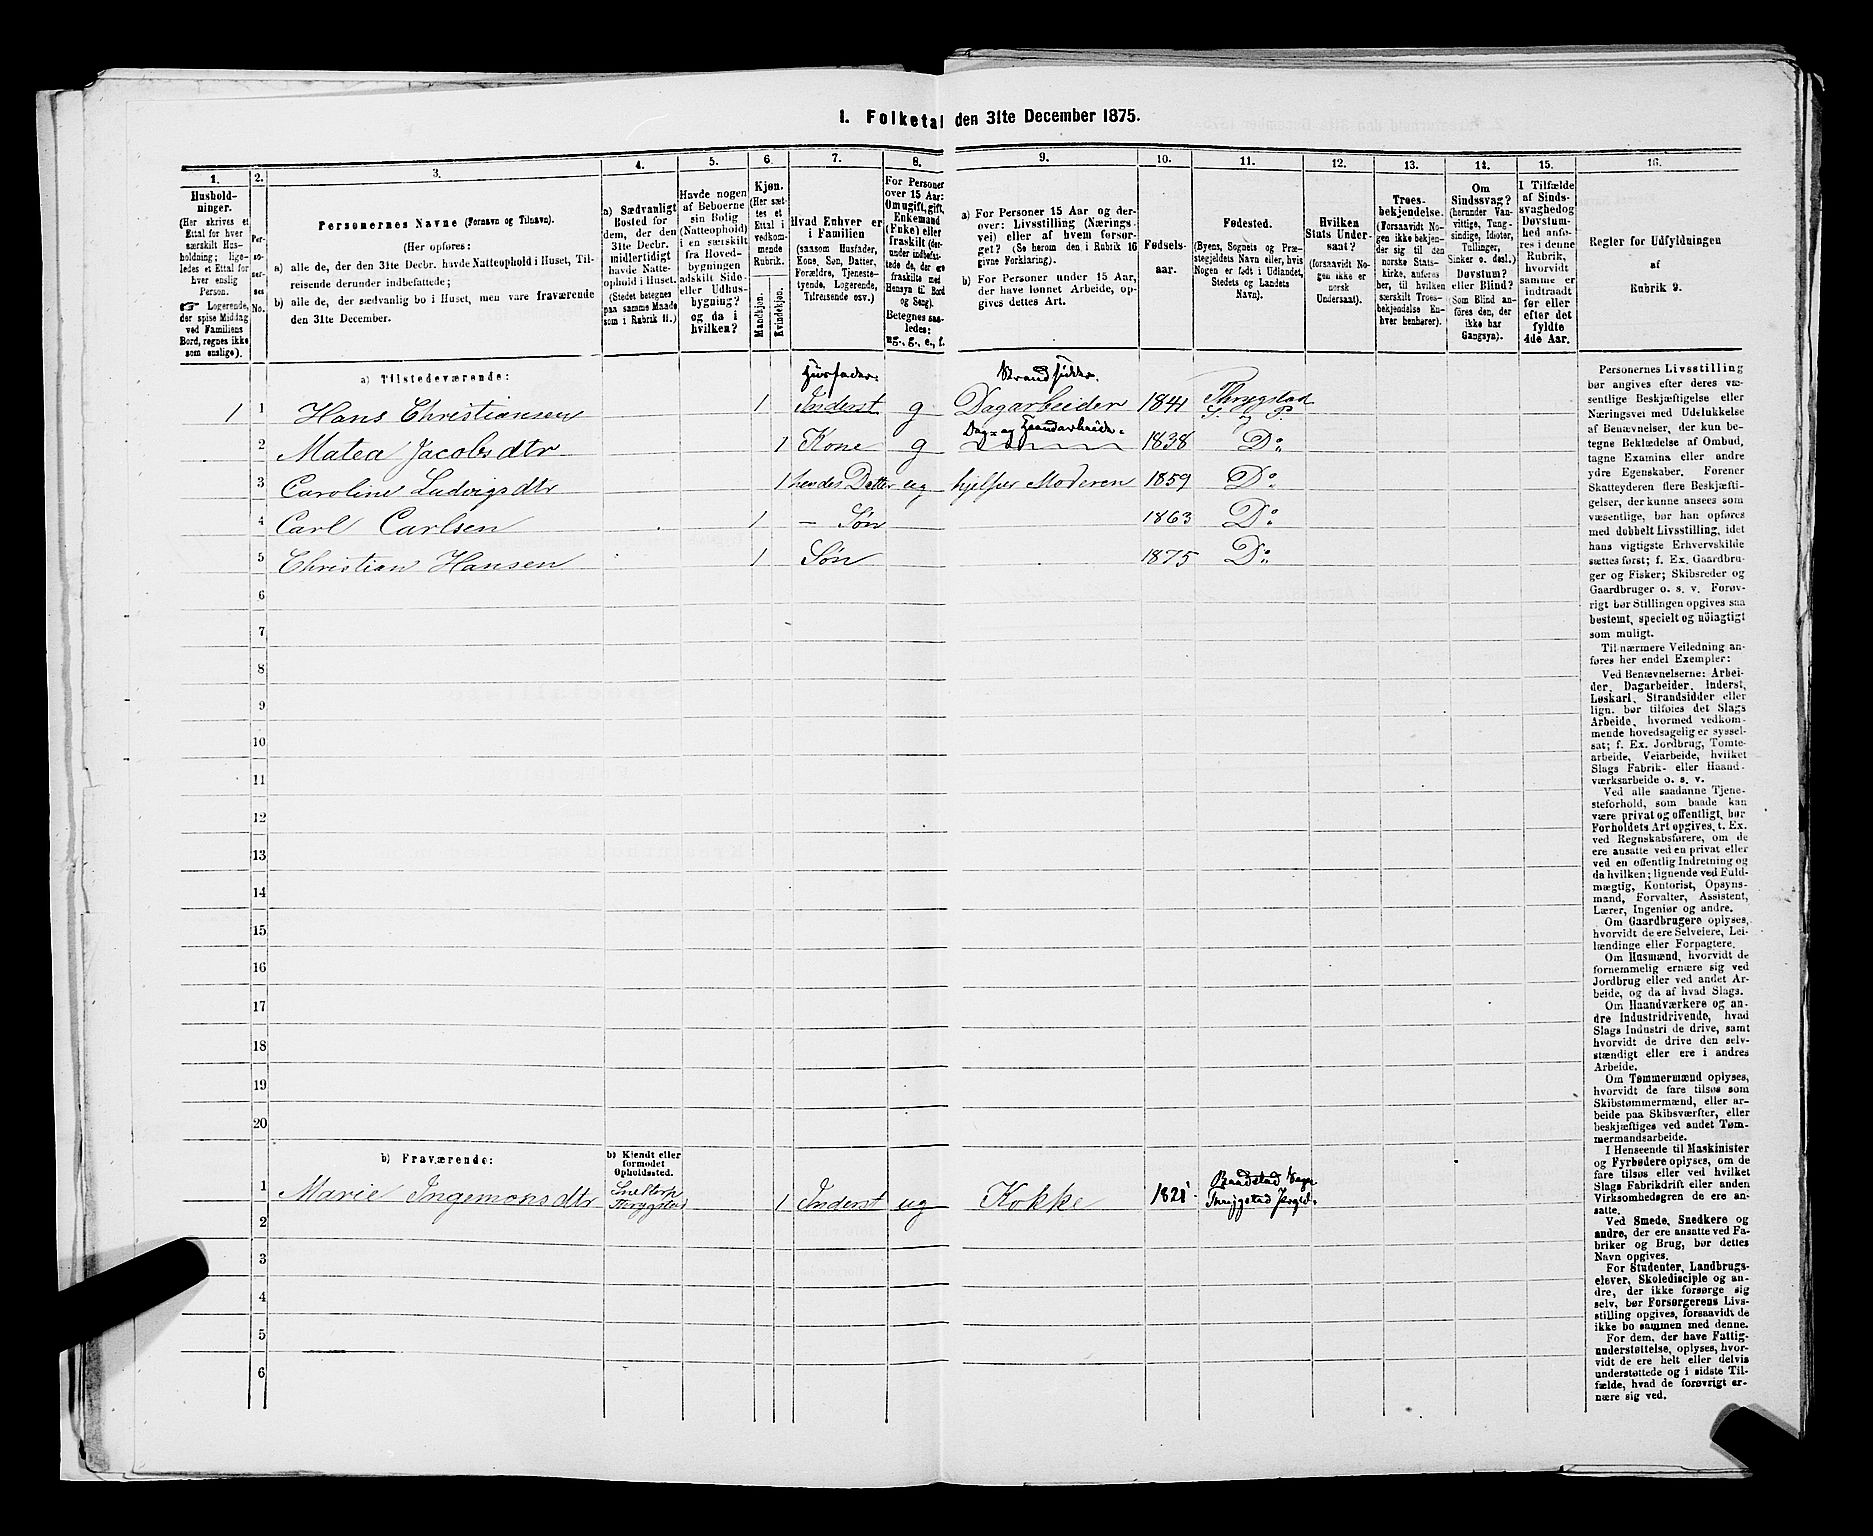 1. Folketal den 31te December 1875.
1. 2. 3. 4. 5. 6. 7. 8. 9. 10. 11. 12. 13. 14. 15. 16.
Hushold-
ninger.
(Her skrives et
Ettal for hver
særskilt Hus-
holdning; lige-
ledes et Ettal for
hver enslig
Person.
☞ Logerende,
der spise Middag
ved Familiens
Bord, regnes ikke
som enslige).
Per-
so-
ner-
nes
No.
Personernes Navne (Fornavn og Tilnavn).
(Her opføres:
a) alle de, der den 31te Decbr. havde Natteophold i Huset, Til-
reisende derunder indbefattede;
b) alle de, der sædvanlig bo i Huset, men vare fraværende
den 31te December.
a) Sædvanligt
Bosted for
dem, der den
31te Decbr.
midlertidigt
havde Natte-
ophold i Huset.
(Stedet betegnes
paa samme Maade
som i Rubrik 11.)
Havde nogen
af Beboerne
sin Bolig
(Natteophold)
i en særskilt
fra Hoved-
bygningen
adskilt Side-
eller Udhus-
bygning?
og da i
hvilken?
Kjøn.
(Her sæt-
tes et
Ettal i
vedkom-
mende
Rubrik.
Mandkjøn.
Kvindekjøn.
Hvad Enhver er
i Familien
(saasom Husfader,
Kone, Søn, Datter,
Forældre, Tjeneste-
tyende, Logerende,
Tilreisende osv.)
For Personer
over 15 Aar:
Om ugift, gift,
Enkemand
(Enke) eller
fraskilt (der-
under indbefat-
tede de, der ere
fraskilte med
Hensyn til Bord
og Seng).
Betegnes saa-
ledes:
ug., g., e., f.
a) For Personer 15 Aar og der-
over: Livsstilling (Nærings-
vei) eller af hvem forsør-
get? (Se herom den i Rubrik 16
givne Forklaring).
b) For Personer under 15 Aar,
der have lønnet Arbeide, op-
gives dettes Art.
Fødsels-
aar.
Fødested.
(Byens, Sognets og Præ-
stegjeldets Navn eller, hvis
Nogen er født i Udlandet,
Stedets og Landets
Navn).
Hvilken
Stats Under-
saat?
(forsaavidt No-
gen ikke er
norsk
Undersaat).
Troes-
bekjendelse.
(Forsaavidt No-
gen ikke bekjen-
der sig til den
norske Stats-
kirke, anføres
her, til hvilken
særskilt Troes-
bekjendelse En-
hver henhører).
Om
Sindssvag?
(herunder Van-
vittige, Tung-
sindige, Idioter,
Tullinger,
Sinker o. desl.)
Døvstum?
eller Blind?
(Som Blind an-
føres den, der
ikke har
Gangsyn).
I Tilfælde
af Sinds-
svaghed og
Døvstum-
hed anfø-
res i denne
Rubrik,
hvorvidt
samme er
indtraadt
før eller
efter det
fyldte
4de Aar.
Regler for Udfyldningen
af
Rubrik 9.
a) Tilstedeværende:
Husfader. Strandsidder.
1 1 Hans Christiansen 1 Inderst g Dagarbeider 1841 Thrygstad
S. og P.
Dag- og Haandarbeide
2 Matea Jacobsdtr 1 Kone g 1838 Do
3 Caroline Ludvigsdtr 1 hendes Datter ug hjelper Moderen 1859 Do
4 Carl Carlsen 1 – Søn 1863 Do
5 Christian Hansen 1 Søn 1875 Do
6
7
8
9
10
11
12
13
14
15
16
17
18
19
20
b) Fraværende:
b) Kjendt eller
formodet
Opholdssted.
1 Marie Ingemonsdtr Thrygstad 1 Inderst ug Kokke 1821
2
3
4
5
6
Personernes Livsstilling
bør angives efter deres væ-
sentlige Beskjæftigelse eller
Næringsvei med Udelukkelse
af Benævnelser, der kun be-
tegne Beklædelse af Ombud,
tagne Examina eller andre
ydre Egenskaber. Forener
Skatteyderen flere Beskjæfti-
gelser, der kunne ansees som
væsentlige, bør han opføres
med dobbelt Livsstilling, idet
hans vigtigste Erhvervskilde
sættes først; f. Ex. Gaardbru-
ger og Fisker; Skibsreder og
Gaardbruger o. s. v. Forøv-
rigt bør Stillingen opgives saa
bestemt, specielt og nöiagtigt
som muligt.
Til nærmere Veiledning an-
føres her endel Exempler:
Ved Benævnelserne: Arbei-
der, Dagarbeider, Inderst,
Løskarl, Strandsidder eller
lign. bør tilføies det Slags
Arbeide, hvormed vedkom-
mende hovedsagelig er syssel-
sat; f. Ex. Jordbrug, Tomte-
arbeide, Veiarbeide, hvilket
Slags Fabrik- eller Haand-
værksarbeide o. s. v.
Ved alle saadanne Tjene-
steforhold, som baade kan
være privat og offentligt, bør
Forholdets Art opgives, t. Ex.
ved Regnskabsførere, om de
ere ansatte ved en privat eller
ved en offentlig Indretning og
da hvilken; lignende ved Fuld-
mægtig, Kontorist, Opsyns-
mand, Forvalter, Assistent,
Lærer, Ingeniør og andre.
Om Gaardbrugere oplyses,
hvorvidt de ere Selveiere, Lei-
lændinge eller Forpagtere.
Om Husmænd, hvorvidt de
fornemmelig ernære sig ved
Jordbrug eller ved andet Ar-
beide, og da af hvad Slags.
Om Haandværkere og an-
dre Industridrivende, hvad
Slags Industri de drive, samt
hvorvidt de drive den selv-
stændigt eller ere i andres
Arbeide.
Om Tømmermænd oplyses,
hvorvidt de fare tilsøs som
Skibstømmermænd, eller ar-
beide paa Skibsværfter, eller
beskjæftiges ved andet Tøm-
mermandsarbeide.
I Henseende til Maskinister
og Fyrbødere oplyses, om de
fare tilsøs eller ved hvilket
Slags Fabrikdrift eller anden
Virksomhedsgren de ere an-
satte.
Ved Smede, Snedkere og
andre, der ere ansatte ved Fa-
briker og Brug, bør dettes
Navn opgives.
For Studenter, Landbrugs-
elever, Skoledisciple og an-
dre, der ikke forsørge sig
selv, bør Forsørgerens Livs-
stilling opgives, forsaavidt de
ikke bo sammen med denne.
For dem, der have Fattig-
understøttelse, oplyses, hvor-
vidt de ere helt eller delvis
understøttede og i sidste Til-
fælde, hvad de forøvrigt er-
nære sig ved.